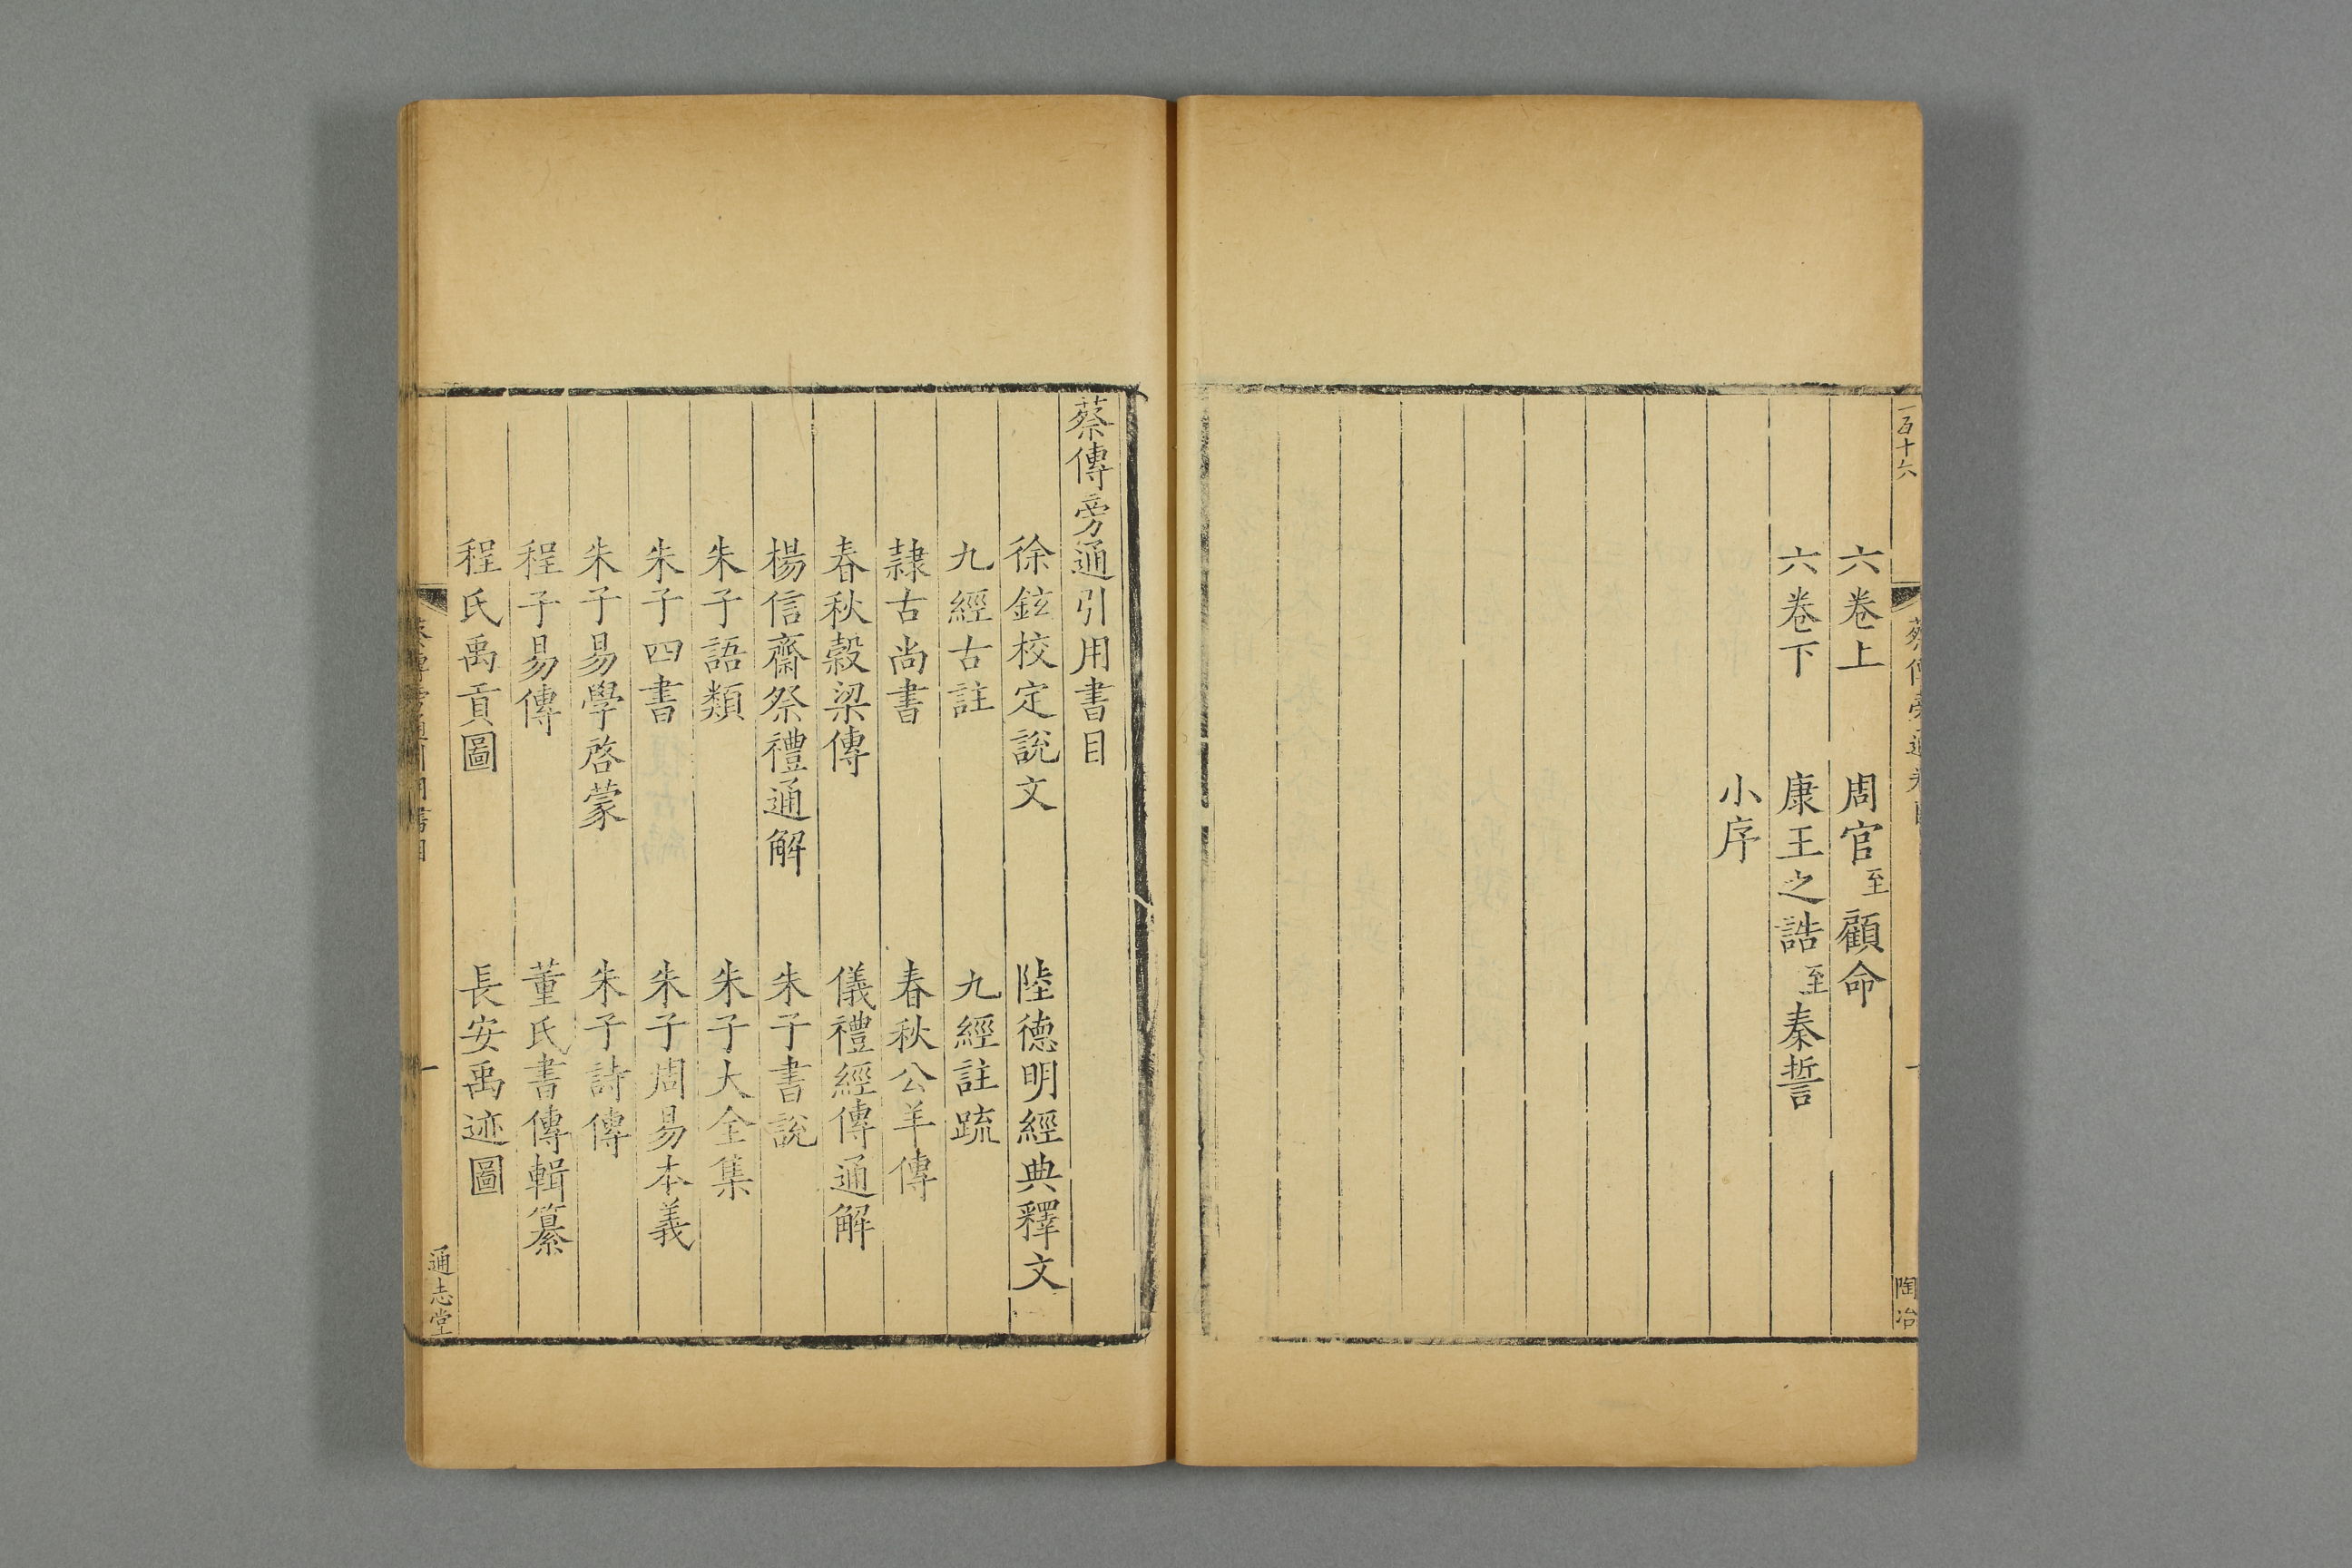 一百十六
蔡傳旁通卷目
一
陶冶
六卷上 周官至顧命
六卷下 康王之誥至秦誓
小序
蔡傳旁通引用書目
徐鉉校定說文 陸德明經典釋文
九經古註 九經註疏
隸古尚書 春秋公羊傳
春秋穀梁傳 儀禮經傳通解
楊信齋祭禮通解 朱子書說
朱子語類 朱子大全集
朱子四書 朱子周易本義
朱子易學啓蒙 朱子詩傳
程子易傳 董氏書傳輯纂
程氏禹貢圖 長安禹迹圖
蔡傳旁通引用書目
一
通志堂